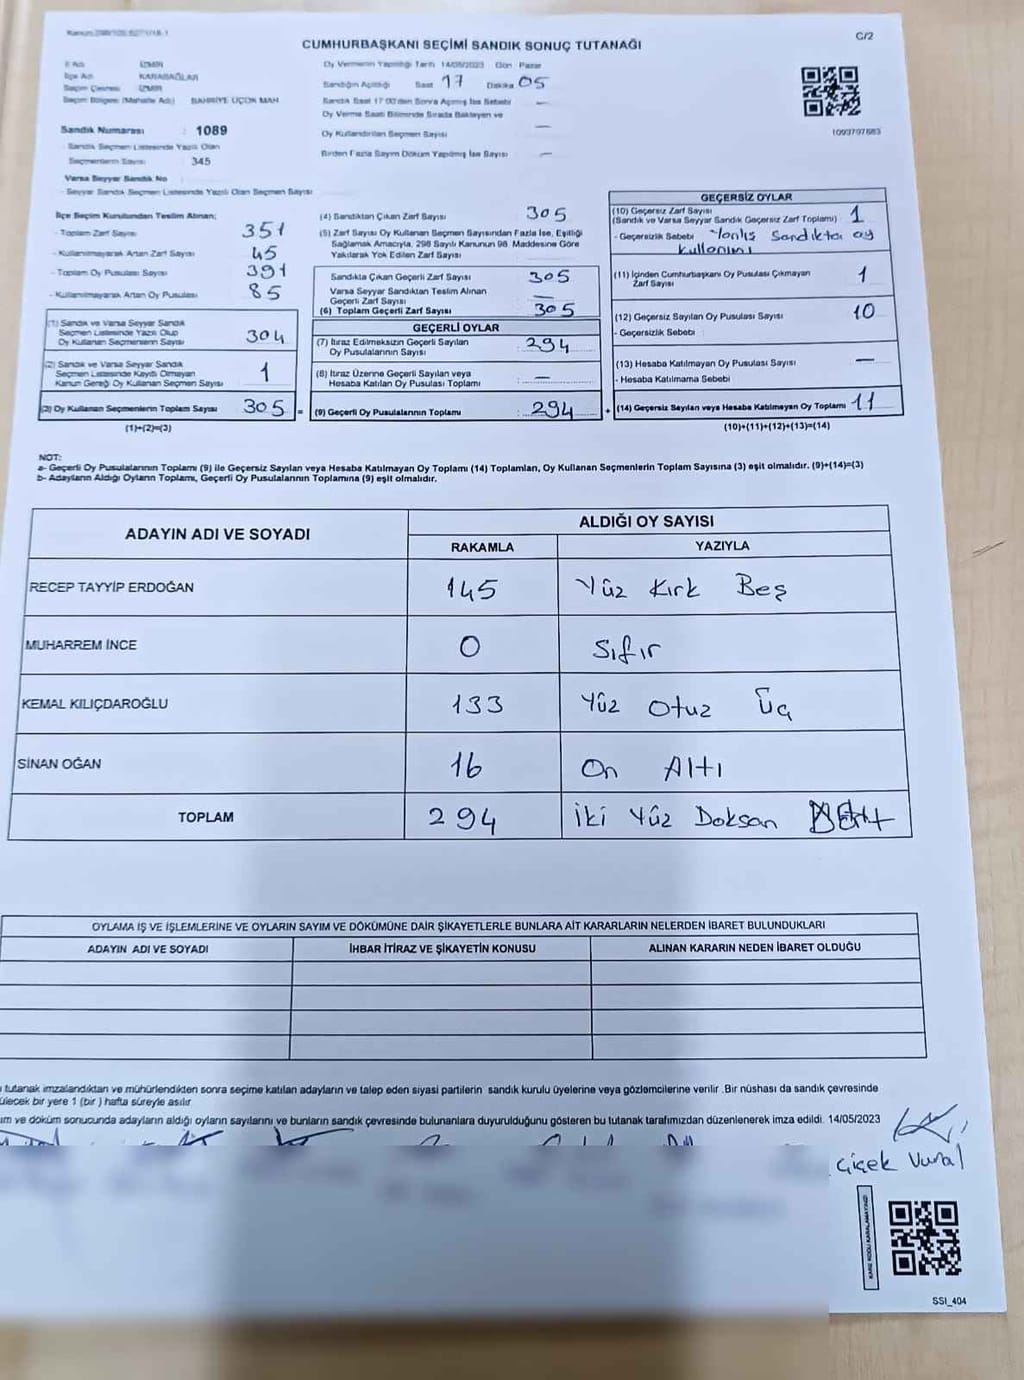 Kanun:298/105, 6271/18-1
CUMHURBAŞKANI SEÇİMİ SANDIK SONUÇ TUTANAĞI
C/2
İl Adı : İZMİR
İlçe Adı : KARABAĞLAR
Seçim Çevresi : İZMİR
Seçim Bölgesi (Mahalle Adı) : BAHRİYE ÜÇOK MAH
Sandık Numarası : 1089
- Sandık Seçmen Listesinde Yazılı Olan
Seçmenlerin Sayısı : 345
Varsa Seyyar Sandık No :
- Seyyar Sandık Seçmen Listesinde Yazılı Olan Seçmen Sayısı :
Oy Vermenin Yapıldığı Tarih 14/05/2023 Gün Pazar
Sandığın Açıldığı Saat 17 Dakika 05
Sandık Saat 17:00'den Sonra Açılmış İse Sebebi —
Oy Verme Saati Bitiminde Sırada Bekleyen ve
Oy Kullandırılan Seçmen Sayısı —
Birden Fazla Sayım Döküm Yapılmış İse Sayısı —
1093797683
İlçe Seçim Kurulundan Teslim Alınan;
- Toplam Zarf Sayısı : 351
- Kullanılmayarak Artan Zarf Sayısı : 45
- Toplam Oy Pusulası Sayısı : 391
- Kullanılmayarak Artan Oy Pusulası : 85
(1) Sandık ve Varsa Seyyar Sandık
Seçmen Listesinde Yazılı Olup
Oy Kullanan Seçmenlerin Sayısı : 304
(2) Sandık ve Varsa Seyyar Sandık
Seçmen Listesinde Kayıtlı Olmayan
Kanun Gereği Oy Kullanan Seçmen Sayısı : 1
(3) Oy Kullanan Seçmenlerin Toplam Sayısı : 305
(1)+(2)=(3)
(4) Sandıktan Çıkan Zarf Sayısı : 305
(5) Zarf Sayısı Oy Kullanan Seçmen Sayısından Fazla İse, Eşitliği
Sağlamak Amacıyla, 298 Sayılı Kanunun 98. Maddesine Göre
Yakılarak Yok Edilen Zarf Sayısı :
Sandıkta Çıkan Geçerli Zarf Sayısı : 305
Varsa Seyyar Sandıktan Teslim Alınan
Geçerli Zarf Sayısı : —
(6) Toplam Geçerli Zarf Sayısı : 305
GEÇERLİ OYLAR
(7) İtiraz Edilmeksizin Geçerli Sayılan
Oy Pusulalarının Sayısı : 294
(8) İtiraz Üzerine Geçerli Sayılan veya
Hesaba Katılan Oy Pusulası Toplamı : —
= (9) Geçerli Oy Pusulalarının Toplamı : 294
GEÇERSİZ OYLAR
(10) Geçersiz Zarf Sayısı
(Sandık ve Varsa Seyyar Sandık Geçersiz Zarf Toplamı) : 1
- Geçersizlik Sebebi : Yanlış Sandıkta oy
kullanımı
(11) İçinden Cumhurbaşkanı Oy Pusulası Çıkmayan
Zarf Sayısı : 1
(12) Geçersiz Sayılan Oy Pusulası Sayısı : 10
- Geçersizlik Sebebi :
(13) Hesaba Katılmayan Oy Pusulası Sayısı : —
- Hesaba Katılmama Sebebi :
+ (14) Geçersiz Sayılan veya Hesaba Katılmayan Oy Toplamı : 11
(10)+(11)+(12)+(13)=(14)
NOT:
a- Geçerli Oy Pusulalarının Toplamı (9) ile Geçersiz Sayılan veya Hesaba Katılmayan Oy Toplamı (14) Toplamları, Oy Kullanan Seçmenlerin Toplam Sayısına (3) eşit olmalıdır. (9)+(14)=(3)
b- Adayların Aldığı Oyların Toplamı, Geçerli Oy Pusulalarının Toplamına (9) eşit olmalıdır.
ADAYIN ADI VE SOYADI
ALDIĞI OY SAYISI
RAKAMLA YAZIYLA
RECEP TAYYİP ERDOĞAN 145 Yüz Kırk Beş
MUHARREM İNCE 0 Sıfır
KEMAL KILIÇDAROĞLU 133 Yüz Otuz Üç
SİNAN OĞAN 16 On Altı
TOPLAM 294 İki Yüz Doksan
OYLAMA İŞ VE İŞLEMLERİNE VE OYLARIN SAYIM VE DÖKÜMÜNE DAİR ŞİKAYETLERLE BUNLARA AİT KARARLARIN NELERDEN İBARET BULUNDUKLARI
ADAYIN ADI VE SOYADI İHBAR İTİRAZ VE ŞİKAYETİN KONUSU ALINAN KARARIN NEDEN İBARET OLDUĞU
tutanak imzalandıktan ve mühürlendikten sonra seçime katılan adayların ve talep eden siyasi partilerin sandık kurulu üyelerine veya gözlemcilerine verilir .Bir nüshası da sandık çevresinde
bir yere 1 (bir ) hafta süreyle asılır
ve döküm sonucunda adayların aldığı oyların sayılarını ve bunların sandık çevresinde bulunanlara duyurulduğunu gösteren bu tutanak tarafımızdan düzenlenerek imza edildi. 14/05/2023
Çiçek Vural
KARE KODU KARALAMAYINIZ!
SSI_404